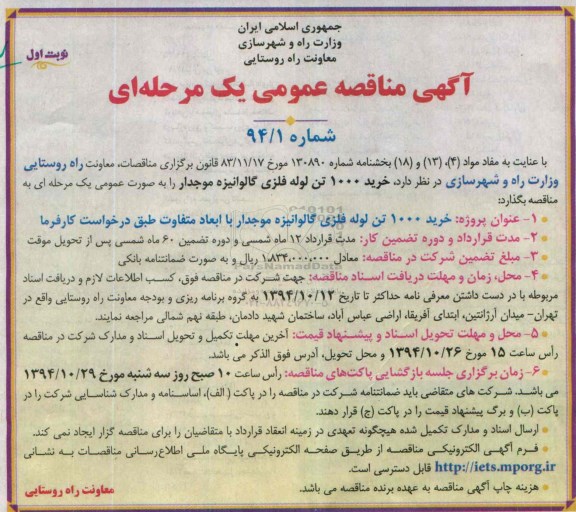 جمهوری اسلامی ایران
وزارت راه و شهرسازی
معاونت راه روستایی
نوبت اول
آگهی مناقصه عمومی یک مرحله‌ای
شماره ۹۴/۱
با عنایت به مفاد مواد (۴)، (۱۳) و (۱۸) بخشنامه شماره ۱۳۰۸۹۰ مورخ ۸۳/۱۱/۱۷ قانون برگزاری مناقصات، معاونت راه روستایی
وزارت راه و شهرسازی در نظر دارد، خرید ۱۰۰۰ تن لوله فلزی گالوانیزه موجدار را به صورت عمومی یک مرحله ای به
مناقصه بگذارد:
۱- عنوان پروژه: خرید ۱۰۰۰ تن لوله فلزی گالوانیزه موجدار با ابعاد متفاوت طبق درخواست کارفرما
۲- مدت قرارداد و دوره تضمین کار: مدت قرارداد ۱۲ ماه شمسی و دوره تضمین ۶۰ ماه شمسی پس از تحویل موقت
۳- مبلغ تضمین شرکت در مناقصه: معادل ۱،۸۳۴،۰۰۰،۰۰۰ ریال و به صورت ضمانتنامه بانکی
۴- محل، زمان و مهلت دریافت اسناد مناقصه: جهت شرکت در مناقصه فوق، کسب اطلاعات لازم و دریافت اسناد
مربوطه با در دست داشتن معرفی نامه حداکثر تا تاریخ ۱۳۹۴/۱۰/۱۲ به گروه برنامه ریزی و بودجه معاونت راه روستایی واقع در
تهران- میدان آرژانتین، ابتدای آفریقا، اراضی عباس آباد، ساختمان شهید دادمان، طبقه نهم شمالی مراجعه نمایند.
۵- محل و مهلت تحویل اسناد و پیشنهاد قیمت: آخرین مهلت تکمیل و تحویل اسناد و مدارک شرکت در مناقصه
رأس ساعت ۱۵ مورخ ۱۳۹۴/۱۰/۲۶ و محل تحویل، آدرس فوق الذکر می باشد.
۶- زمان برگزاری جلسه بازگشایی پاکت‌های مناقصه: رأس ساعت ۱۰ صبح روز سه شنبه مورخ ۱۳۹۴/۱۰/۲۹
می باشد. شرکت های متقاضی باید ضمانتنامه شرکت در مناقصه را در پاکت (الف)، اساسنامه و مدارک شناسایی شرکت را در
پاکت (ب) و برگ پیشنهاد قیمت را در پاکت (ج) قرار دهند.
ارسال اسناد و مدارک تکمیل شده هیچگونه تعهدی در زمینه انعقاد قرارداد با متقاضیان را برای مناقصه گزار ایجاد نمی کند.
فرم آگهی الکترونیکی مناقصه از طریق صفحه الکترونیکی پایگاه ملی اطلاع‌رسانی مناقصات به نشانی
http://iets.mporg.ir قابل دسترسی است.
هزینه چاپ آگهی مناقصه به عهده برنده مناقصه می باشد.
معاونت راه روستایی